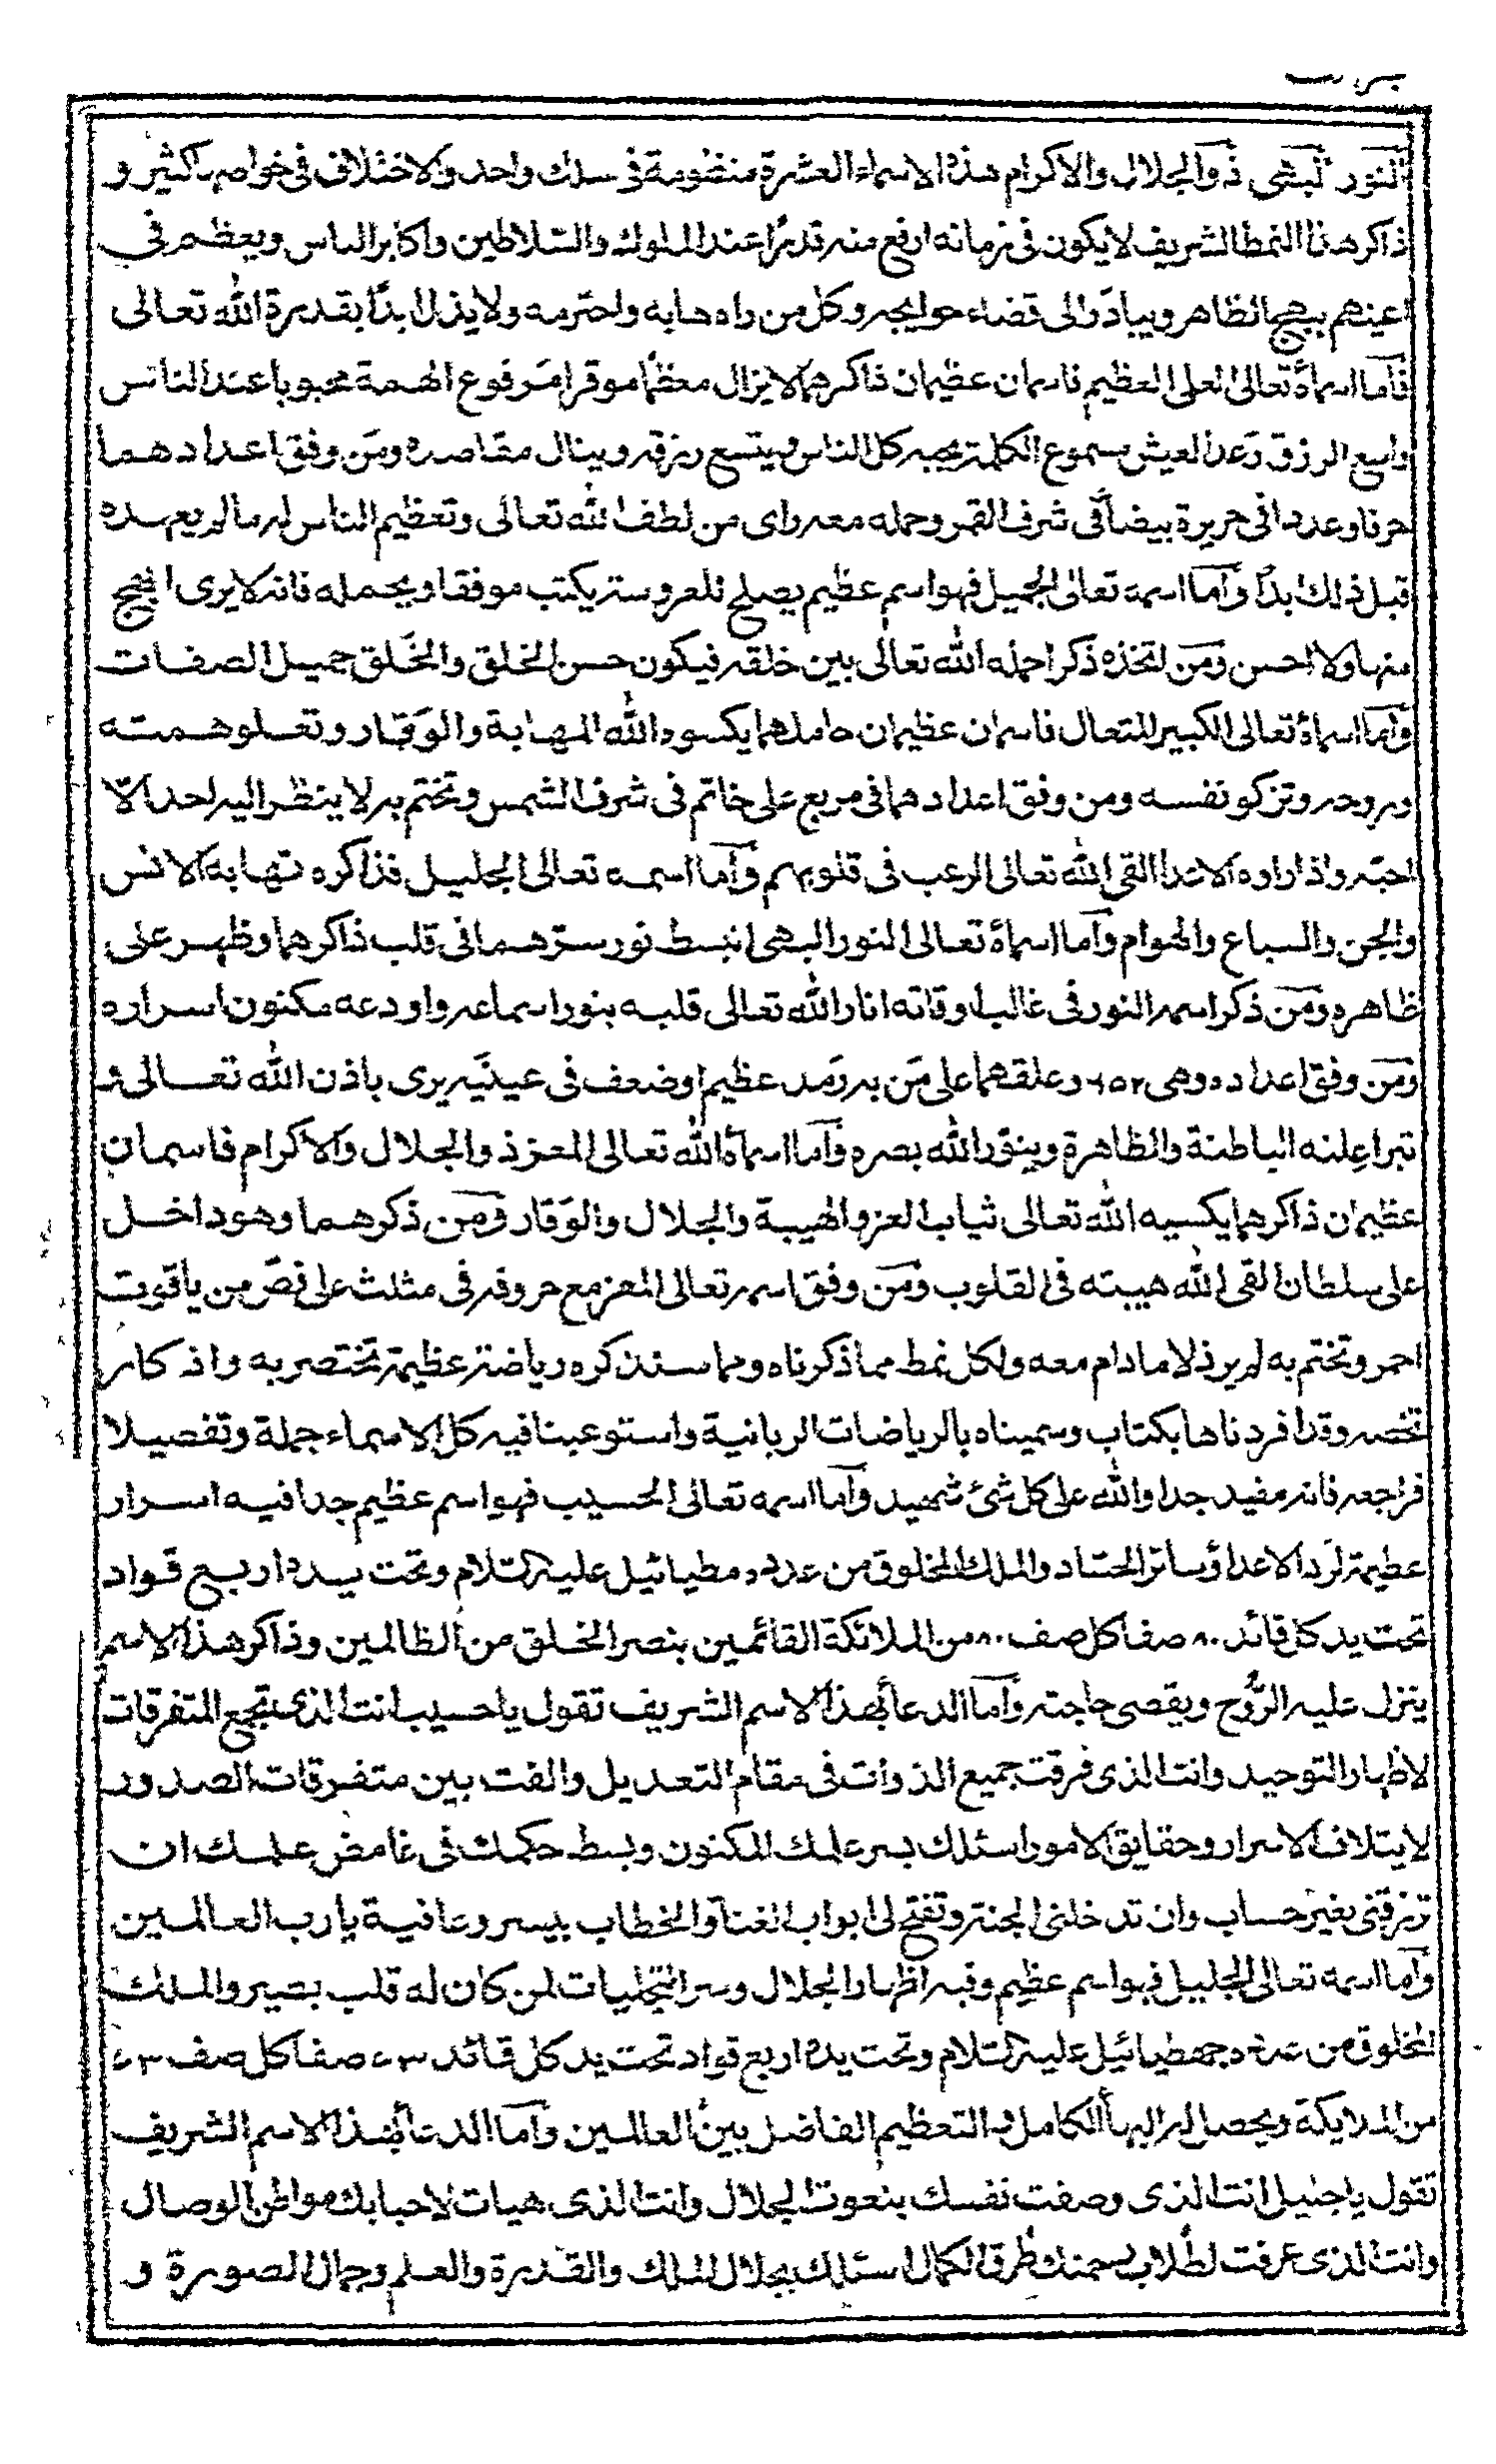 النور البهى ذو الجلال والاكرام هذه الاسماء العشرة منظومة فى سلك واحد والاختلاف فى خواصها كثير و
ذاكر هذا النمط الشريف لا يكون فى زمانه ارفع منه قدرًا عند الملوك والسلاطين واكابر الناس ويعظم فى
اعينهم ببهجها الظاهر ويبادر الى قضاء حوايجه وكل من راه هابه واحترمه ولا يذل ابدًا بقدرة الله تعالى
فأما اسماؤه تعالى العلى العظيم فاسمان عظيمان ذاكرهما لا يزال معظما موقرا مرفوع الهمة محبوبا عند الناس
واسع الرزق رغد العيش مسموع الكلمة يحبه كل الناس ويتسع رزقه وينال مقاصده ومن وفق اعدادهما
حرفا وعددا فى حريرة بيضآ فى شرف القمر وحمله معه راى من لطف الله تعالى وتعظيم الناس له ما لم يعهده
قبل ذلك ابدًا وأما اسمه تعالى الجميل فهو اسم عظيم يصلح للعروسة يكتب موفقا ويحمله فانه لا يرى ابهج
منها ولا احسن ومن اتخذه ذكرا جمله الله تعالى بين خلقه فيكون حسن الخلق والخلق جميل الصفات
وأما اسماؤه تعالى الكبير المتعال فاسمان عظيمان حاملهما يكسوه الله المهابة والوقار وتعلو همته
وروحه وتزكو نفسه ومن وفق اعدادهما فى مربع على خاتم فى شرف الشمس وتختم به لا ينظر اليه احد الّا
احبّه واذا راوه الاعدا القى الله تعالى الرعب فى قلوبهم وأما اسمه تعالى الجليل فذاكره تهابه الانس
والجن والسباع والهوام وأما اسماؤه تعالى النور البهى انبسط نور سرّهما فى قلب ذاكرهما وظهر على
ظاهره ومن ذكر اسمه النور فى غالب اوقاته انار الله تعالى قلبه بنور اسمائه واودعه مكنون اسراره
ومن وفق اعداده وهى ٦٥٢ وعلقهما على من به رمد عظيم او ضعف فى عينيه يرى باذن الله تعالى و
تبرا علته الباطنة والظاهرة وينور الله بصره وأما اسماؤه الله تعالى المعز ذو الجلال والاكرام فاسمان
عظيمان ذاكرهما يكسيه الله تعالى ثياب العز والهيبة والجلال والوقار ومن ذكرهما وهو داخل
على سلطان القى الله هيبته فى القلوب ومن وفق اسمه تعالى المعز مع حروفه فى مثلث على فصّ من ياقوت
احمر وتختم به لم ير ذلا ما دام معه ولكل نمط مما ذكرناه ومما سنذكره رياضة عظيمة تختصر به واذكار
تخصه وقد افردناها بكتاب وسميناه بالرياضات الربانية واستوعبنا فيه كل الاسماء جملة وتفصيلا
فراجعه فانه مفيد جدا والله على كل شئ شهيد وأما اسمه تعالى الحسيب فهو اسم عظيم جدا فيه اسرار
عظيمة لرد الاعداؤ وسائر الحسّاد والملك المخلوق من عدده مطيائيل عليه السّلام وتحت يده اربع قواد
تحت يد كل قائد ٨٠ صفا كل صف ٨٠ من الملائكة القائمين بنصر الخلق من الظالمين وذاكر هذا الاسم
ينزل عليه الرُّوح ويقضى حاجته وأما الدعأ بهذا الاسم الشريف تقول يا حسيب انت الذى تجمع المتفرقات
لاظهار التوحيد وانت الذى فرقت جميع الذوات فى مقام التعديل والفت بين متفرقات الصدور
لايتلاف الاسرار وحقايق الامور اسئلك بسر علمك المكنون وبسط حكمك فى غامض علمك ان
ترزقنى بغير حساب وان تدخلنى الجنة وتفتح لى ابواب الغنآ والخطاب بيسر وعافية يا رب العالمين
وأما اسمه تعالى الجليل فهو اسم عظيم وفيه اظهار الجلال وسر التجليات لمن كان له قلب بصير والملك
المخلوق من عدده جهطيائيل عليه السّلام وتحت يده اربع قواد تحت يد كل قائد ٤٣ صفا كل صف ٤٣
من الملايكة ويحصل له البهأ الكامل والتعظيم الفاضل بين العالمين وأما الدعأ بهذا الاسم الشريف
تقول يا جليل انت الذى وصفت نفسك بنعوت الجلال وانت الذى هيات لاحبابك مواطن الوصال
وانت الذى عرفت لطلاب طرق الكمال اسئلك بجلال الملك والقدرة والعلم وجمال الصورة و